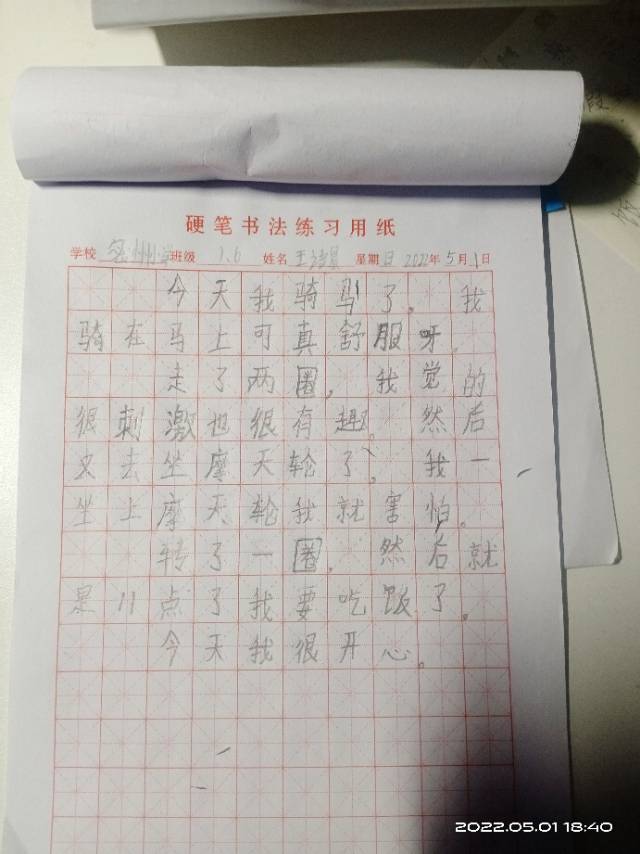 硬笔书法练习用纸
学校 州小学 班级 1.6 姓名 王 星期日 2022年5月1日
今天我骑马了。我
骑在马上可真舒服呀。
走了两圈，我觉的
很刺激也很有趣。然后
又去坐摩天轮了、我一
坐上摩天轮我就害怕。
转了一圈，然后就
是11点了我要吃饭了。
今天我很开心。
2022.05.01 18:40